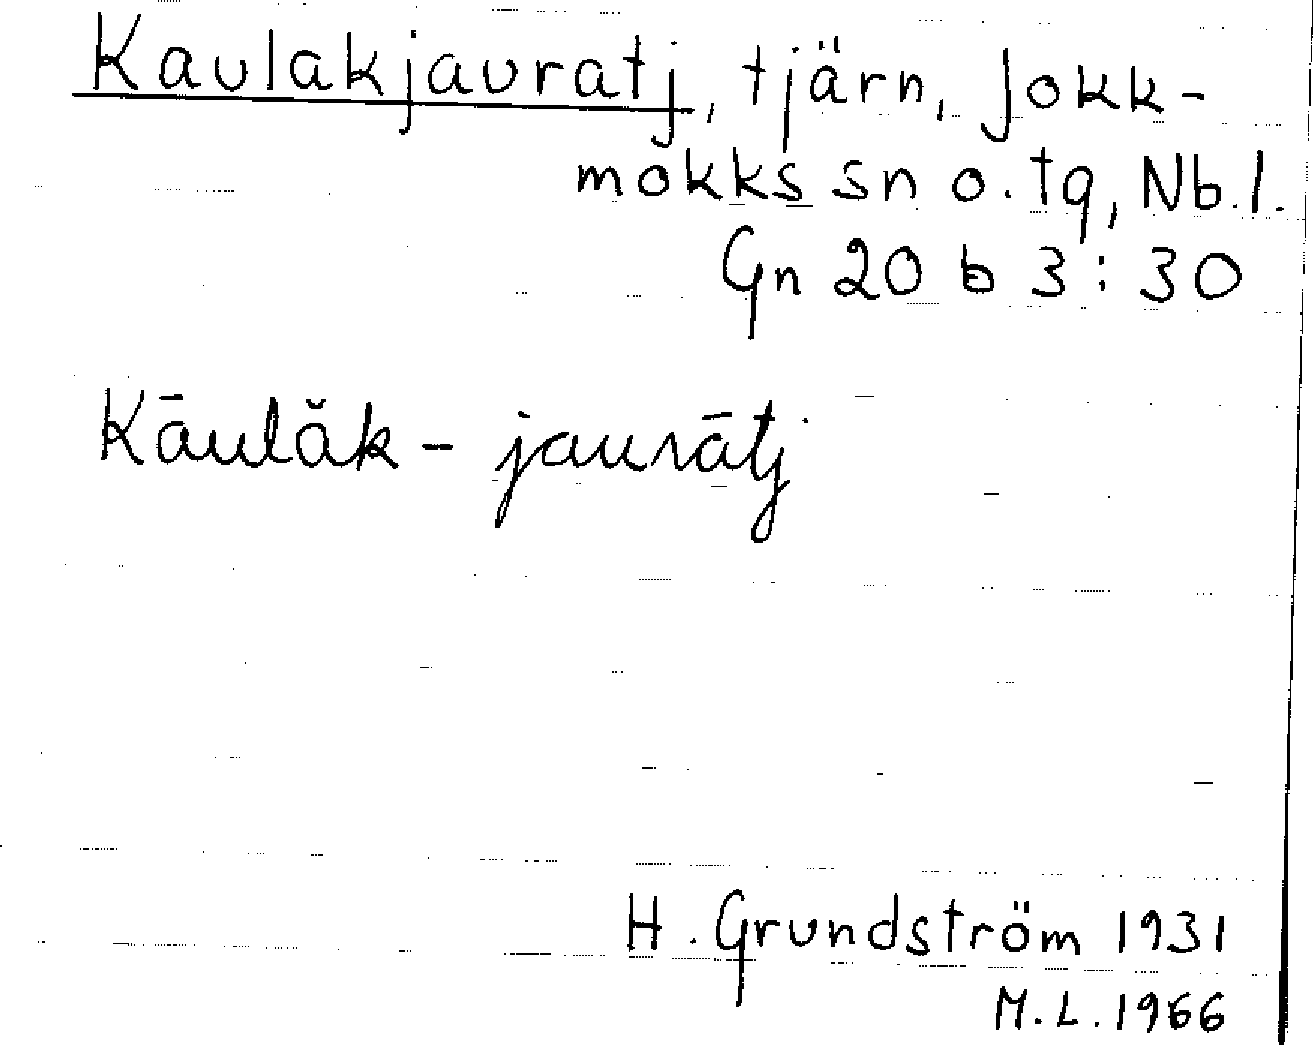 Kaulakjauratj, tjärn, Jokk-
mokks sn o. tg, Nb. l.
Gn 20 b 3:30
Kāulăk-jaurātj
H. Grundström 1931
M.L. 1966